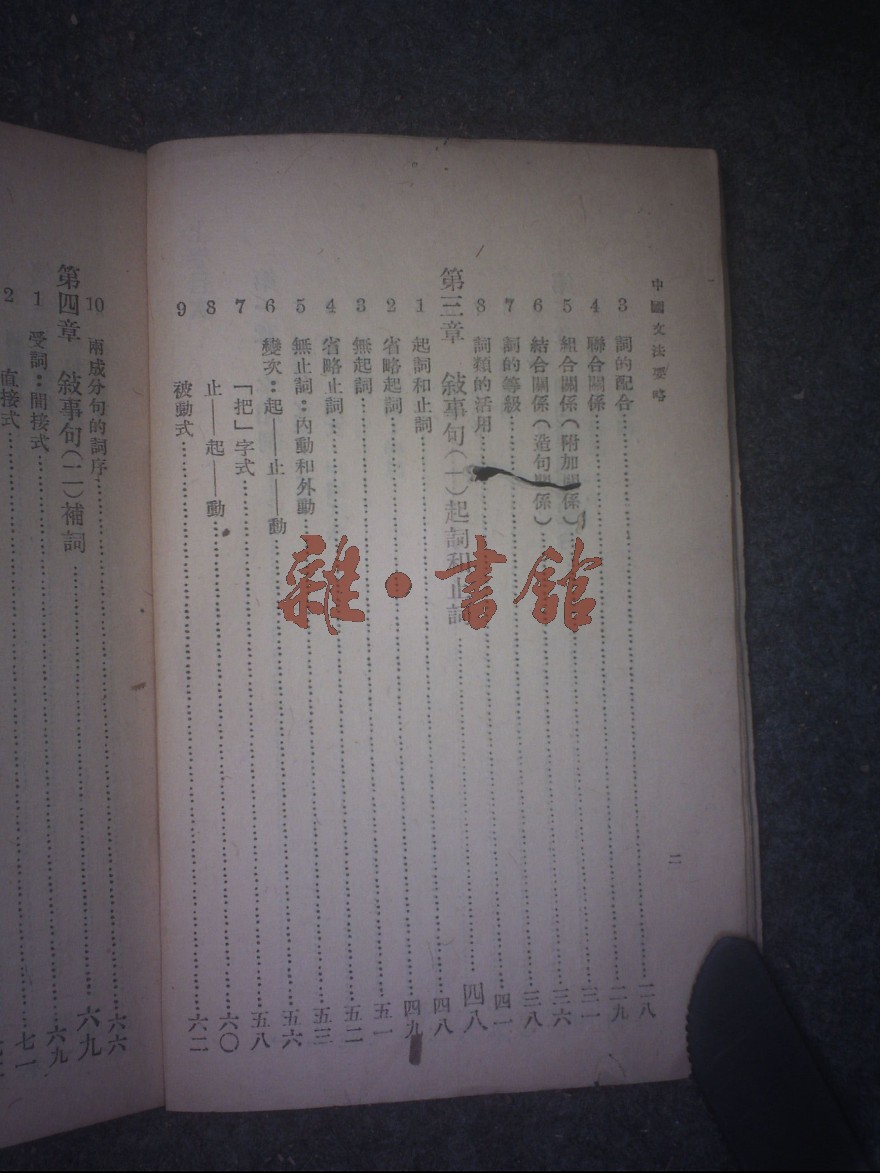 中國文法要略
二
3 詞的配合……二八
4 聯合關係……二九
5 組合關係(附加關係)……三一
6 結合關係(造句關係)……三六
7 詞的等級……三八
8 詞類的活用……四一
第三章 敍事句(一)起詞和止詞……四八
1 起詞和止詞……四八
2 省略起詞……四九
3 無起詞……五一
4 省略止詞……五二
5 無止詞:內動和外動……五三
6 變次:起——止——動……五六
7 「把」字式……五八
8 止——起——動……六〇
9 被動式……六二
10 兩成分句的詞序……六六
第四章 敍事句(二)補詞……六九
1 受詞:間接式……六九
2 直接式……七一
雜·書館